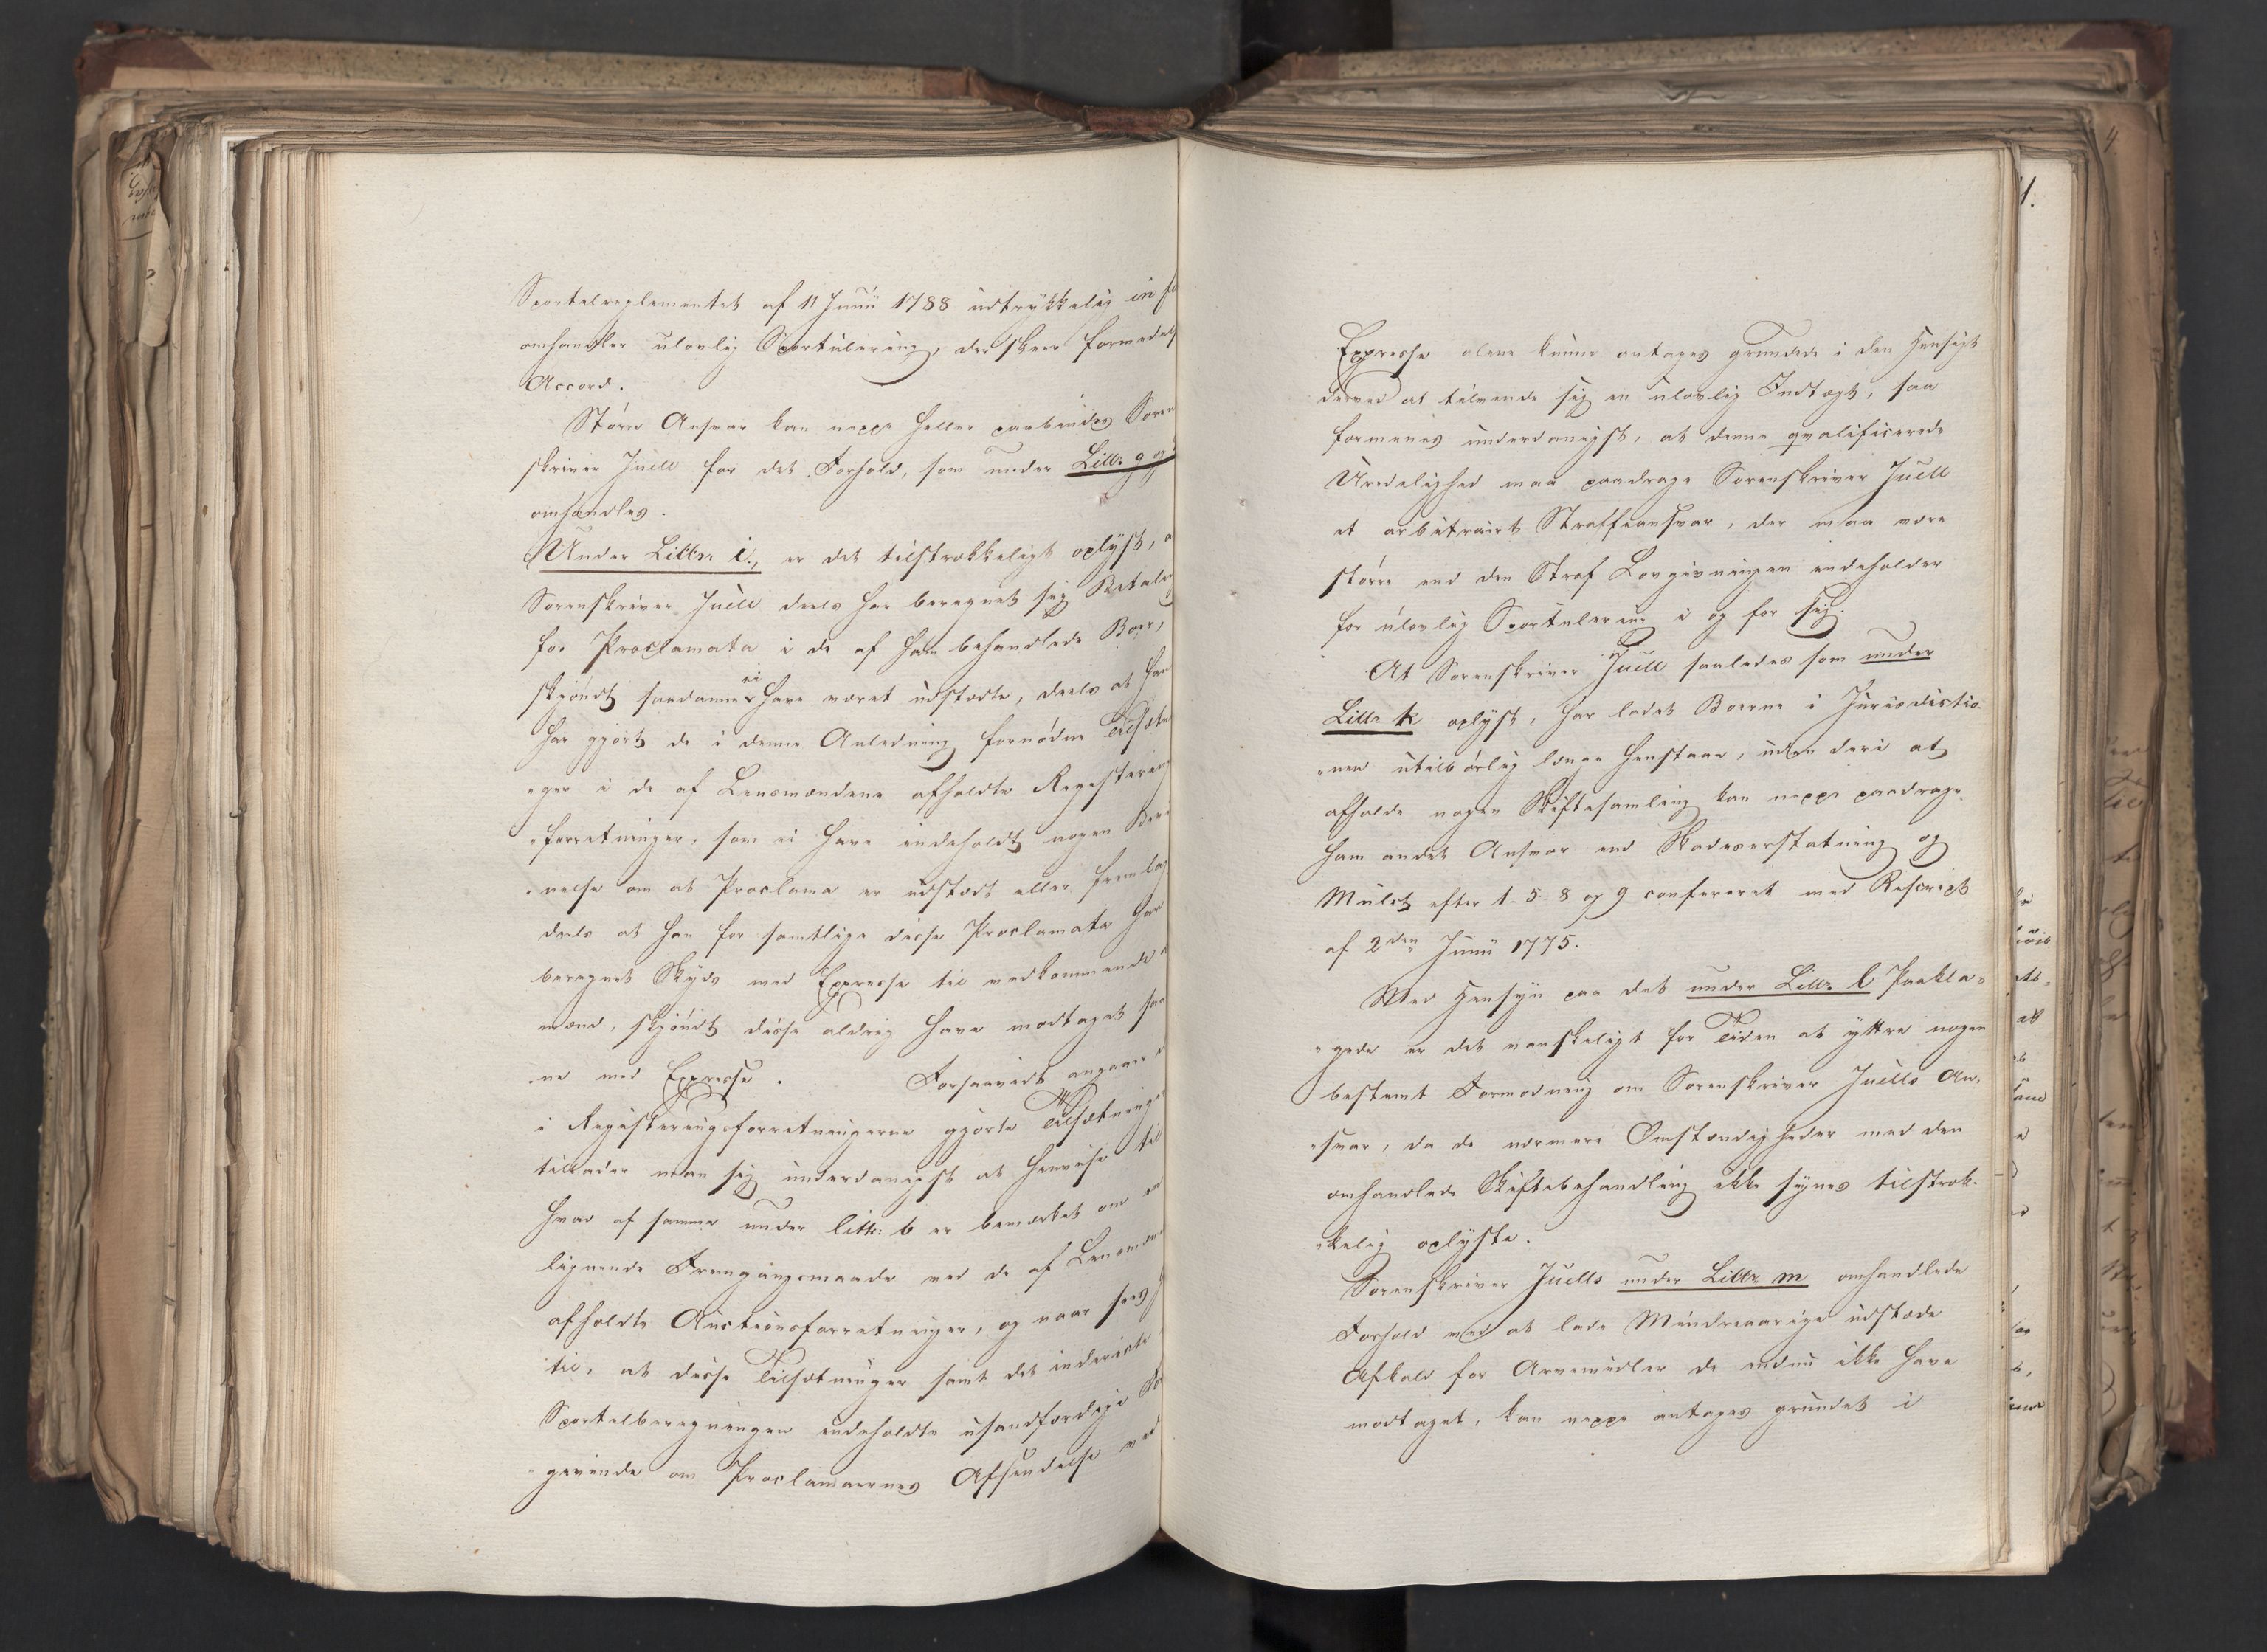 Sportelreglementet af 11 Junii 1788 udtrykkelig in
omhandler ulovlig Sportulering, der skeer formedelst
Accord.
Större Ansvar kan neppe heller paabindes Soren
skriver Juell for det Forhold, som under Littr. g og
omhandles.
Under Littr. i., er det tilstrækkeligt oplÿst, a
Sorenskriver Juell deels har beregnet sig Betaling
for Proclamata i de af ham behandlede Boer,
skjöndt saadanne ei have været udstædte, deels at han
har gjort de i denne Anledning fornödne Tilsætn
"ger i de af Lensmændene afholdte Registerings
"forretninger, som ei have indeholdt nogen Bere
"nelse om at Proclama er udstædt eller fremlagt
deels at han for samtlige disse Proclamata har
beregnet Skyds med Expresse til vedkommende
mænd, skjöndt disse aldrig have modtaget saa
"ne med Expresse. Forsaavidt angaaer
i Registeringsforretningerne gjorte Tilsætninger
tillader man sig underdanigst at henvise til
hvad af samme under littr: b er bemærket om en
lignende Fremgangsmaade ved de af Lensmænd
afholdte Auctionsforretninger, og naar sees
til, at disse Tilsætninger samt det indirecte
Sportelberegningen indeholdte usandfærdige For
"givende om Proclamaernes Afsendelse med
Expresse alene kunne antages grundede i den Hensigt
derved at tilvende sig en ulovlig Indtægt, saa
formenes underdanigst, at denne qvalificerede
Uredelighed maa paadrage Sorenskriver Juell
et arbitrairt Straffeansvar, der maa være
större end den Straf Lovgivningen indeholder
for ulovlig Sportulering i og for sig.
At Sorenskriver Juell saaledes som under
Littr k oplÿst, har ladet Boerne i Jurisdictio-
"nen utilbörlig længe henstaae, uden deri at
afholde nogen Skiftesamling kan neppe paadrage
ham andet Ansvar end Skadeserstatning og
Mulct efter 1-5-8 og 9 confereret med Rescript
af 2den Junii 1775.
Med Hensÿn paa det under Littr. l Paakla-
"gede er det vanskeligt for Tiden at ÿttre nogen
bestemt Formodning om Sorenskriver Juells An-
"svar, da de nærmere Omstændigheder med den
omhandlede Skiftebehandling ikke sÿnes tilstræk-
"kelig oplÿste.
Sorenskriver Juells under Littr m omhandlede
Forhold ved at lade Mindreaarige udstæde
Afkald for Arvemidler de endnu ikke have
modtaget, kan neppe antages grundet i